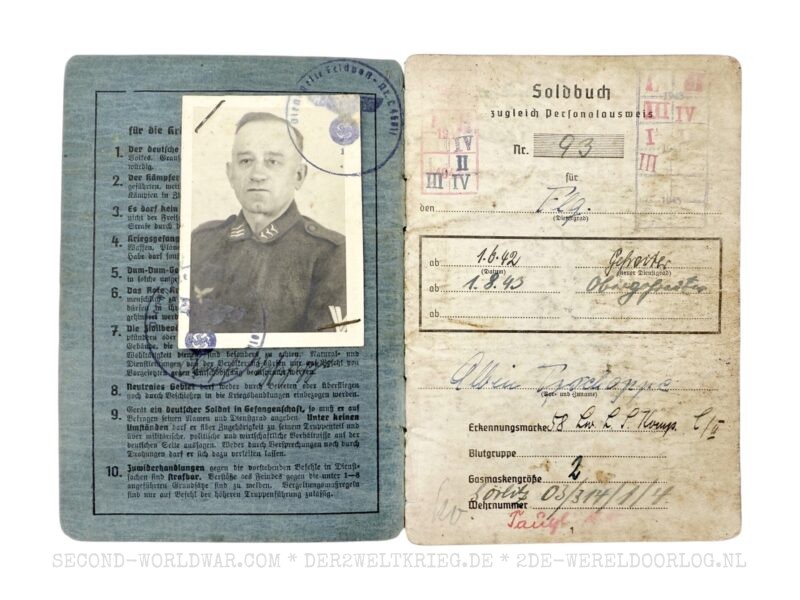 für die Kri
1. Der deutsche
Volkes. Grau
würdig.
2. Der Kämpfer
geführten, wer
Kämpfen in Zi
3. Es darf kein
nicht der Frei
Strafe durch
4. Kriegsgefang
Waffen, Plän
Habe darf
5. Dum-Dum-Ge
in solche umge
6. Das Rote K
menschlich zu
7. Die Zivilbevö
plündern oder
Gebäude, die
Wohltätigkeit dienen, sind besonders zu achten. Natural- und
Dienstleistungen von der Bevölkerung dürfen nur auf Befehl von
Vorgesetzten gegen Entschädigung beansprucht werden.
8. Neutrales Gebiet darf weder durch Betreten oder Überfliegen
noch durch Beschießen in die Kriegshandlungen einbezogen werden.
9. Gerät ein deutscher Soldat in Gefangenschaft, so muß er auf
Befragen seinen Namen und Dienstgrad angeben. Unter keinen
Umständen darf er über Zugehörigkeit zu seinem Truppenteil und
über militärische, politische und wirtschaftliche Verhältnisse auf der
deutschen Seite aussagen. Weder durch Versprechungen noch durch
Drohungen darf er sich dazu verleiten lassen.
10. Zuwiderhandlungen gegen die vorstehenden Befehle in Dienst-
sachen sind strafbar. Verstöße des Feindes gegen die unter 1—8
angeführten Grundsätze sind zu melden. Vergeltungsmaßregeln
sind nur auf Befehl der höheren Truppenführung zulässig.
Soldbuch
zugleich Personalausweis
Nr. 93
für
den Flg.
(Dienstgrad)
ab 1.6.42 Gefreiter
(Datum) (neuer Dienstgrad)
ab 1.8.43 Obergefreiter
ab
Albin
(Vor- und Zuname)
Erkennungsmarke 58 Lw. L. S. Komp. /II
Blutgruppe
Gasmaskengröße 2
Wehrnummer Görlitz 03/314/1/4
SECOND-WORLDWAR.COM * DER2WELTKRIEG.DE * 2DE-WERELDOORLOG.NL